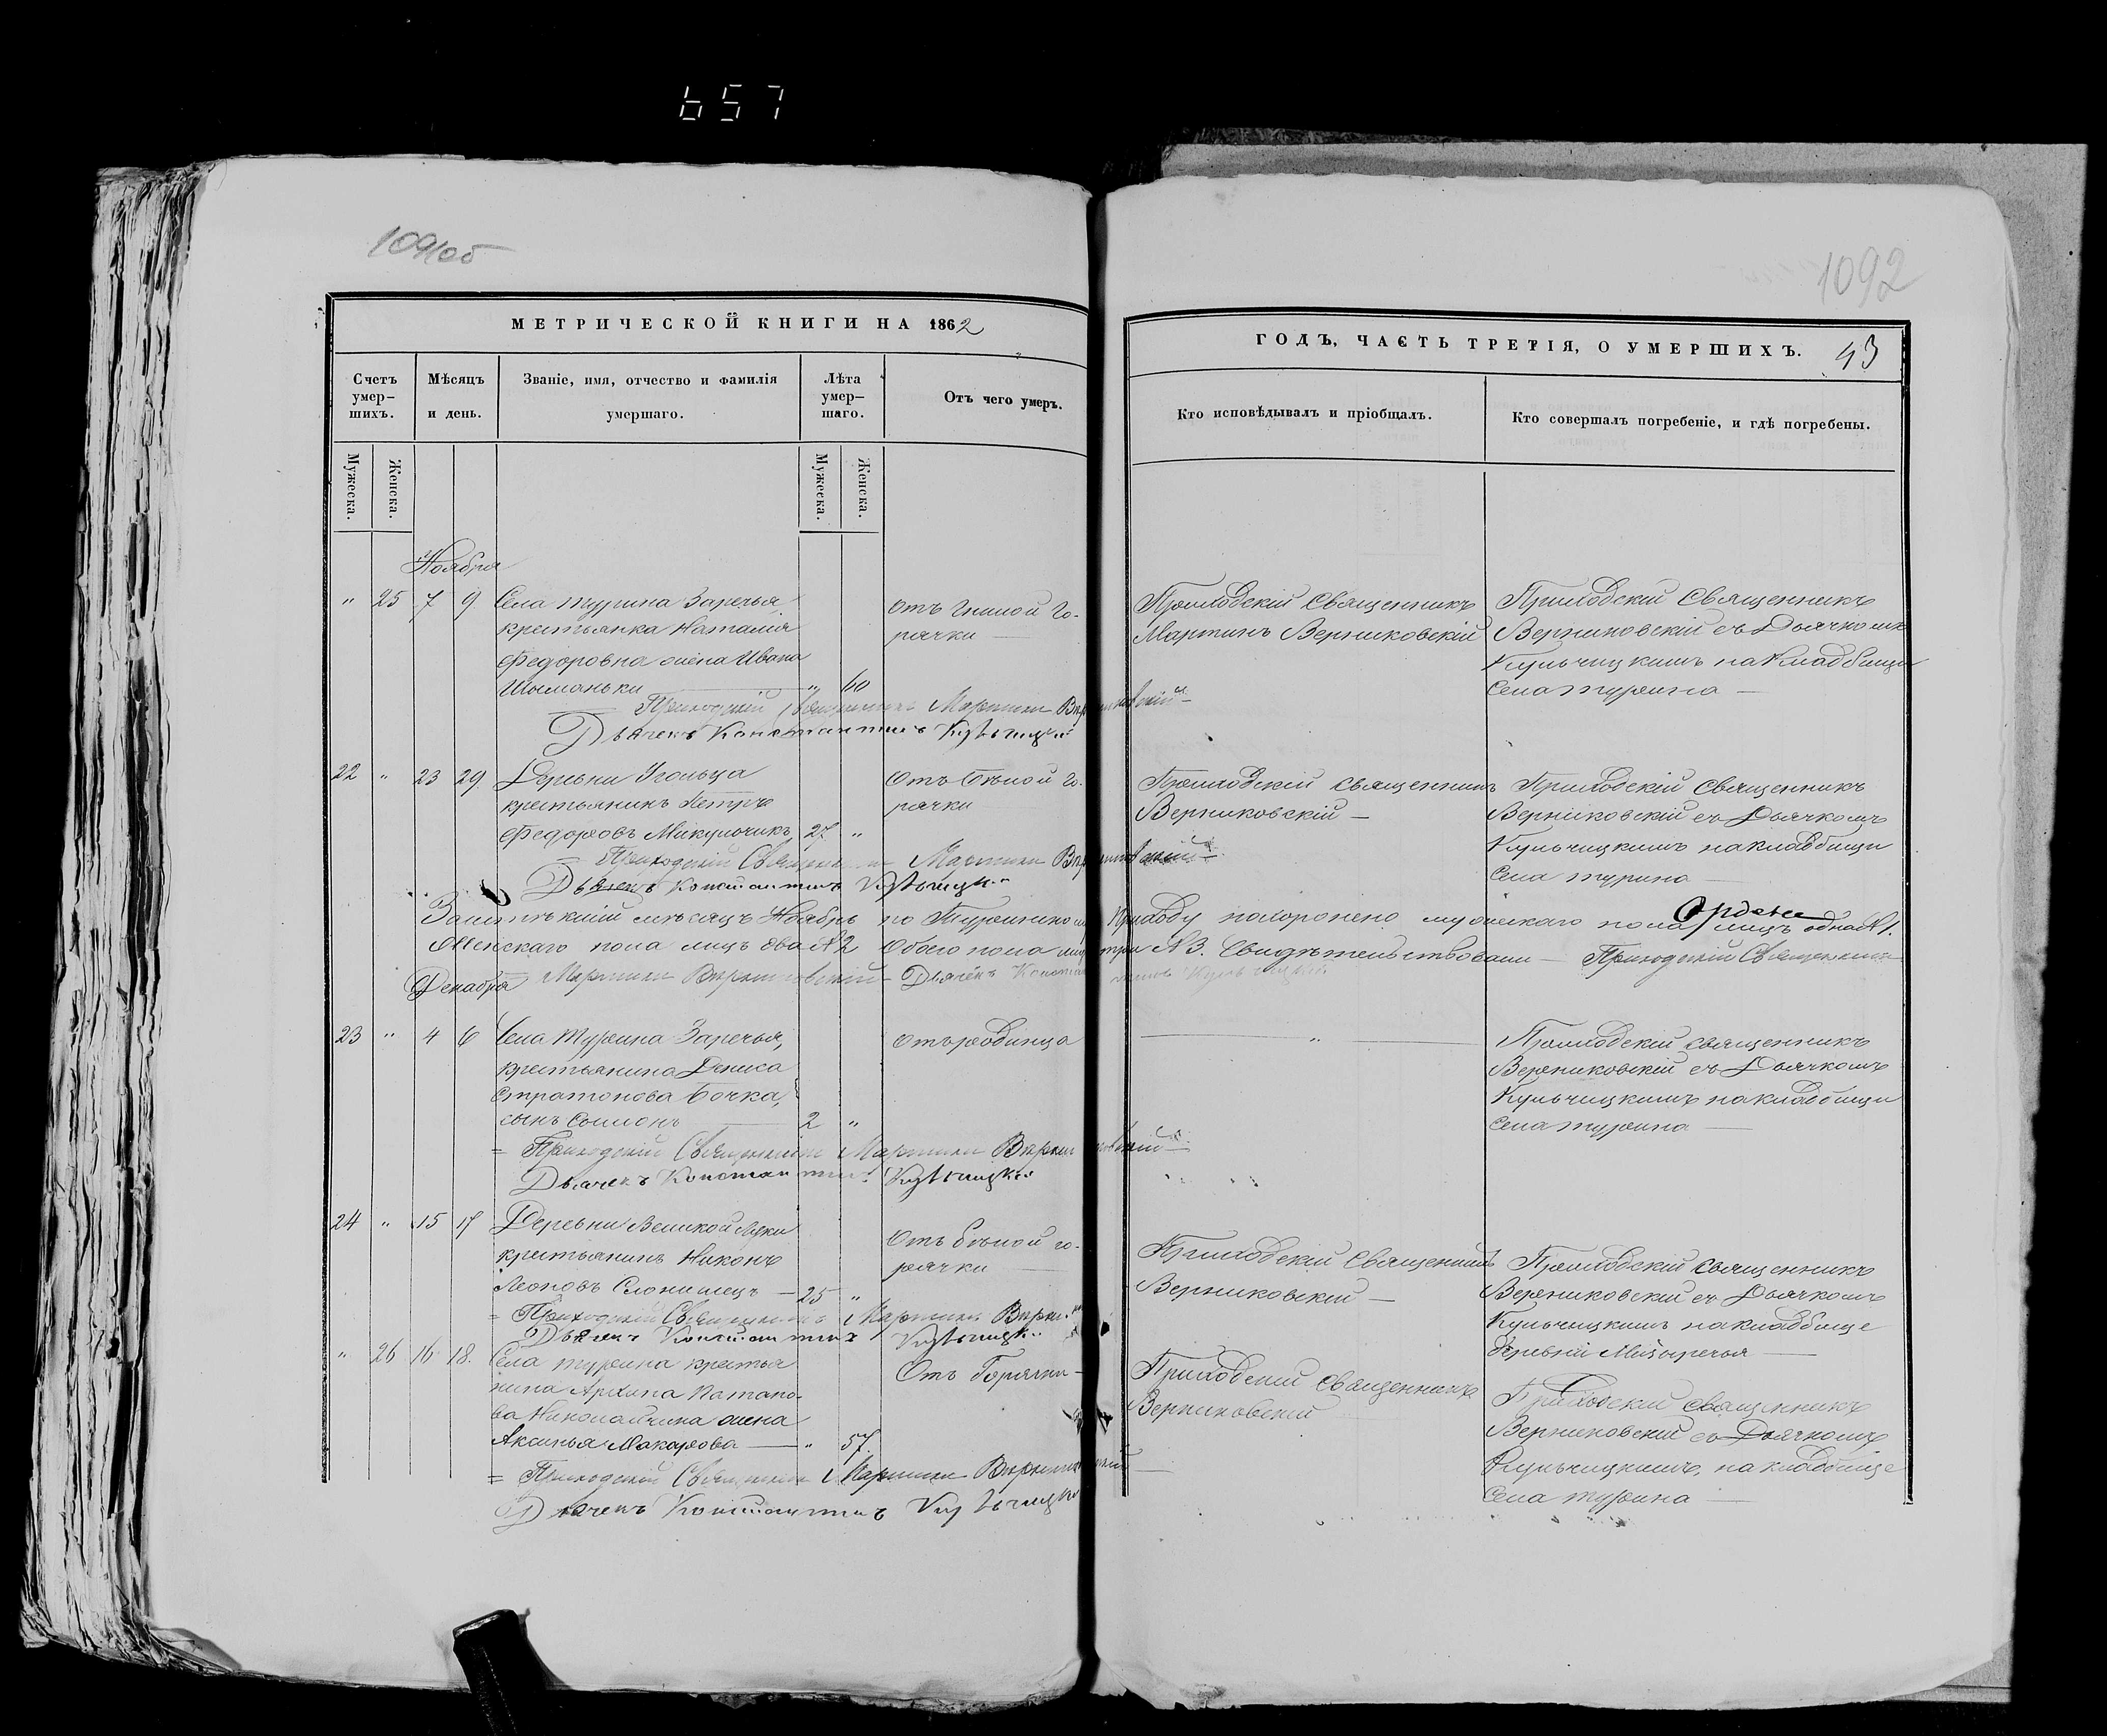 657
1091 об
1092
МЕТРИЧЕСКОЙ КНИГИ НА 1862
ГОДЪ, ЧАСТЬ ТРЕТІЯ, О УМЕРШИХЪ.
43
Счетъ умер-шихъ.
Мѣсяцъ и день.
Званіе, имя, отчество и фамилія умершаго.
Лѣта умер-шаго.
Отъ чего умеръ.
Кто исповѣдывалъ и пріобщалъ.
Кто совершалъ погребеніе, и гдѣ погребены.
Мужеска.
Женска.
Мужеска.
Женска.
Ноября
" 25 7 9 Села Турина Заречья
крестьянка Наталия
Федоровна жена Ивана
" 60
отъ гнилой го-
рячки
Приходскій Священникъ
Мартинъ Верниковскій
Приходскій Священникъ
Верниковскій съ Дьячкомъ
Кульчицкимъ на кладбищи
Села Турина
Приходскій Священникъ Мартинъ Верниковскій
Дьячекъ Константинъ Кульчицкій
22 " 23 29 Деревни Угольца
крестьянинъ Петръ
Федоровъ Микульчикъ 27 "
Отъ бѣлой го-
рячки
Приходскій Священникъ
Верниковскій
Приходскій Священникъ
Верниковскій съ Дьячкомъ
Кульчицкимъ на кладбищи
Села Турина
Приходскій Священникъ Мартинъ Верниковскій
Дьячекъ Константинъ Кульчицкій
мѣсяцъ Ноябрь по приходу похоронено мужескаго пола лицъ одна № 1.
Женскаго пола лицъ два № 2 Обоего пола лицъ три № 3. Свидѣтельствовали Приходскій Священникъ
Мартинъ Верниковскій Дьячекъ Константинъ Кульчицкій
Декабря
23 " 4 6 Села Турина Заречья,
крестьянина Дениса
Стратонова Бочка,
сынъ 2 "
"
Приходскій Священникъ
Верниковскій съ Дьячкомъ
Кульчицкимъ на кладбищи
Села Турина
Приходскій Священникъ Мартинъ Верниковскій
Дьячекъ Константинъ Кульчицкій
24 " 15 17 Деревни Великой Луки
крестьянинъ Никонъ
Леоновъ Слонимецъ 25 "
Отъ бѣлой го-
рячки
Приходскій Священникъ
Верниковскій
Приходскій Священникъ
Верниковскій съ Дьячкомъ
Кульчицкимъ на кладбище
деревни
Приходскій Священникъ Мартинъ
Дьячекъ Константинъ Кульчицкій
" 26 16 18. Села Турина крестья
нина Архипа Патапо-
ва жена
Аксинья Макарова " 57.
Отъ Горячки
Приходскій Священникъ
Верниковскій
Приходскій Священникъ
Верниковскій съ Дьячкомъ
Кульчицкимъ, на кладбище
Села Турина
Приходскій Священникъ Мартинъ Верниковскій
Дьячекъ Константинъ Кульчицкій